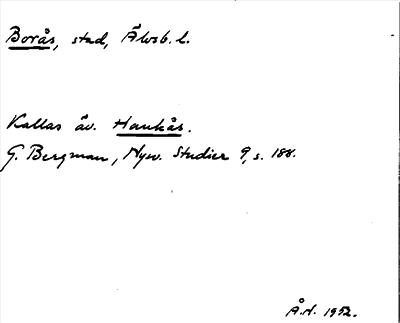 Borås, stad, Älvsb. l.
Kallas äv. Hankås.
G. Bergman, Nysv. Studier 9, s. 188.
Å.H. 1952.